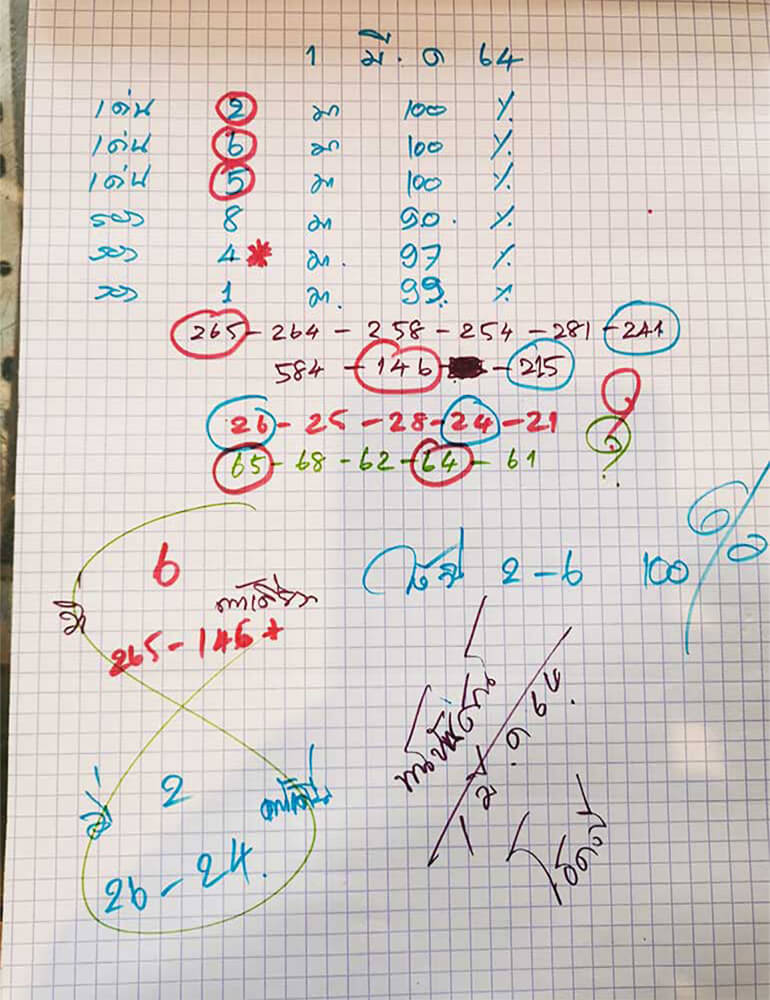 1 มี.ค 64
เด่น 2 มา 100 %
เด่น 6 มา 100 %
เด่น 5 มา 100 %
รอง 8 มา 90. %
รอง 4* มา. 97 %
รอง 1 มา. 99. %
265 - 264 - 258 - 254 - 281 - 241
584 - 146 - - 215
26 - 25 - 28 - 24 - 21
65 - 68 - 62 - 64 - 61
6
265 - 146 +
2 - 6 100 %
2
26 - 24.
1 มี.ค 64.